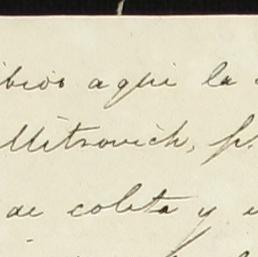 ibios aqui la
Mitrovich, p
de coleta y